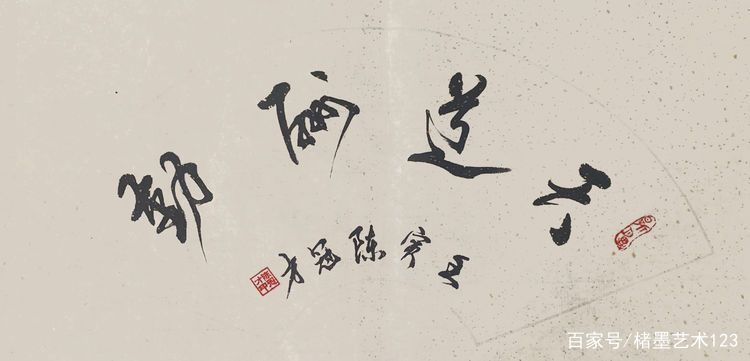 天道酬勤
壬寅陈冠
百家号/楮墨艺术123